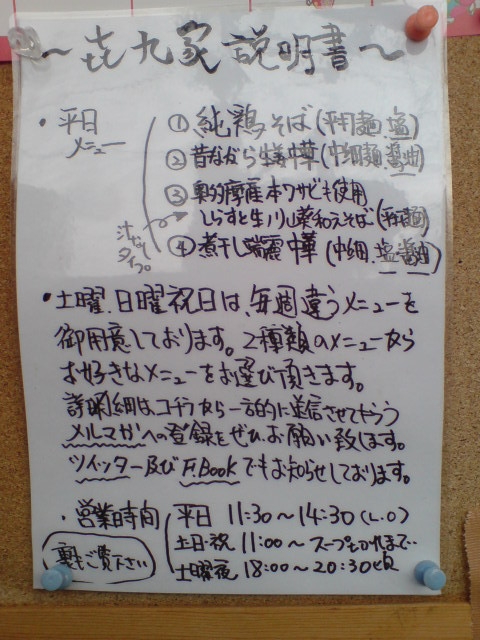 ～㐂九家説明書～
・平日メニュー
①純鶏そば(平打麺 塩)
②昔ながら中華(中細麺 醤油)
③奥多摩産本ワサビも使用
しらすと生川山葵和えそば(平打麺)
汁なしタイプ。
④煮干し端麗中華(中細、塩醤油)
・土曜、日曜祝日は、毎週違うメニューを
御用意しております。2種類のメニューから
お好きなメニューをお選び頂きます。
詳明細はコチラから一方的に送信させてもらう
メルマガへの登録をぜひ、お願い致します。
ツイッター及びF.Bookでもお知らせしております。
・営業時間
平日 11:30～14:30(L.O)
土日・祝 11:00～スープきれまで
土曜夜 18:00～20:30頃
裏もご覧下さい